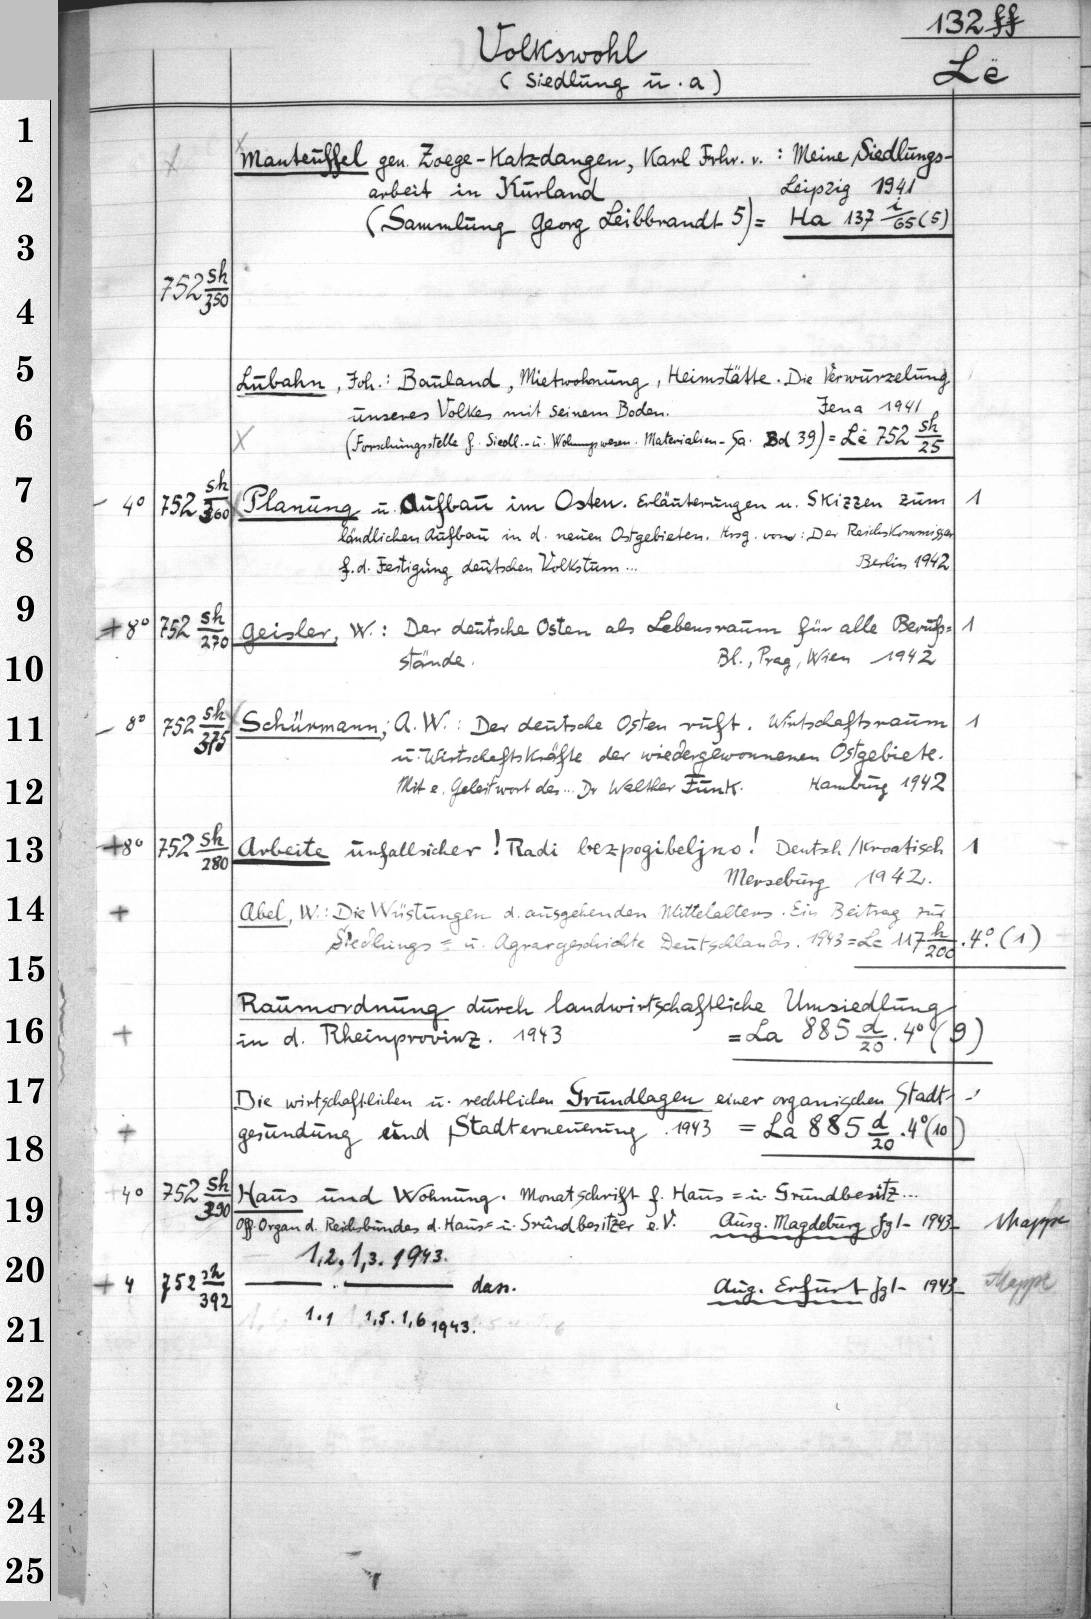 132 ff
Volkswohl
Lë
( Siedlung u. a )
1
Manteuffel gen. Zoege-Katzdangen, Karl Frhr. v. : Meine Siedlungs-
2
arbeit in Kurland Leipzig 1941
(Sammlung Georg Leibbrandt 5) = Ha 137 i/65 (5)
3
752 sh/350
4
5
Lubahn, Joh.: Bauland, Mietwohnung, Heimstätte. Die Verwurzelung
unseres Volkes mit seinem Boden. Jena 1941
6
(Forschungsstelle f. Siedl.- u. Wohnungswesen. Materialien-Sa. Bd 39) = Lë 752 sh/25
7
- 4° 752 sh/360 Planung u. Aufbau im Osten. Erläuterungen u. Skizzen zum 1
8
ländlichen Aufbau in d. neuen Ostgebieten. Hrsg. vom: Der Reichskommissar
f. d. Festigung deutschen Volkstum ... Berlin 1942
9
+ 8° 752 sh/270 Geisler, W.: Der deutsche Osten als Lebensraum für alle Berufs= 1
10
stände. Bl., Prag, Wien 1942
11
- 8° 752 sh/375 Schürmann, A. W.: Der deutsche Osten ruft. Wirtschaftsraum 1
u. Wirtschaftskräfte der wiedergewonnenen Ostgebiete.
12
Mit e. Geleitwort des ... Dr Walther Funk. Hamburg 1942
13
+ 8° 752 sh/280 Arbeite unfallsicher! Radi bezpogibeljno! Deutsch/Kroatisch 1
Merseburg 1942.
14
+ Abel, W.: Die Wüstungen d. ausgehenden Mittelalters. Ein Beitrag zur
Siedlungs= u. Agrargeschichte Deutschlands. 1943 = Lë 117 h/200 . 4°. (1)
15
Raumordnung durch landwirtschaftliche Umsiedlung
16
+ in d. Rheinprovinz. 1943 = La 885 d/20 . 4° (9)
17
Die wirtschaftlichen u. rechtlichen Grundlagen einer organischen Stadt-
18
+ gesundung und Stadterneuerung . 1943 = La 885 d/20 . 4° (10)
19
4° 752 sh/390 Haus und Wohnung. Monatschrift f. Haus= u. Grundbesitz...
Off. Organ d. Reichsbundes d. Haus= u. Grundbesitzer e. V. Ausg. Magdeburg Jg 1- 1943- Mappe
20
1,2. 1,3. 1943.
+ 4 752 sh/392 —— . —— dass. Ausg. Erfurt Jg 1- 1943- Mappe
21
1.1 1,5. 1,6 1943.
22
23
24
25